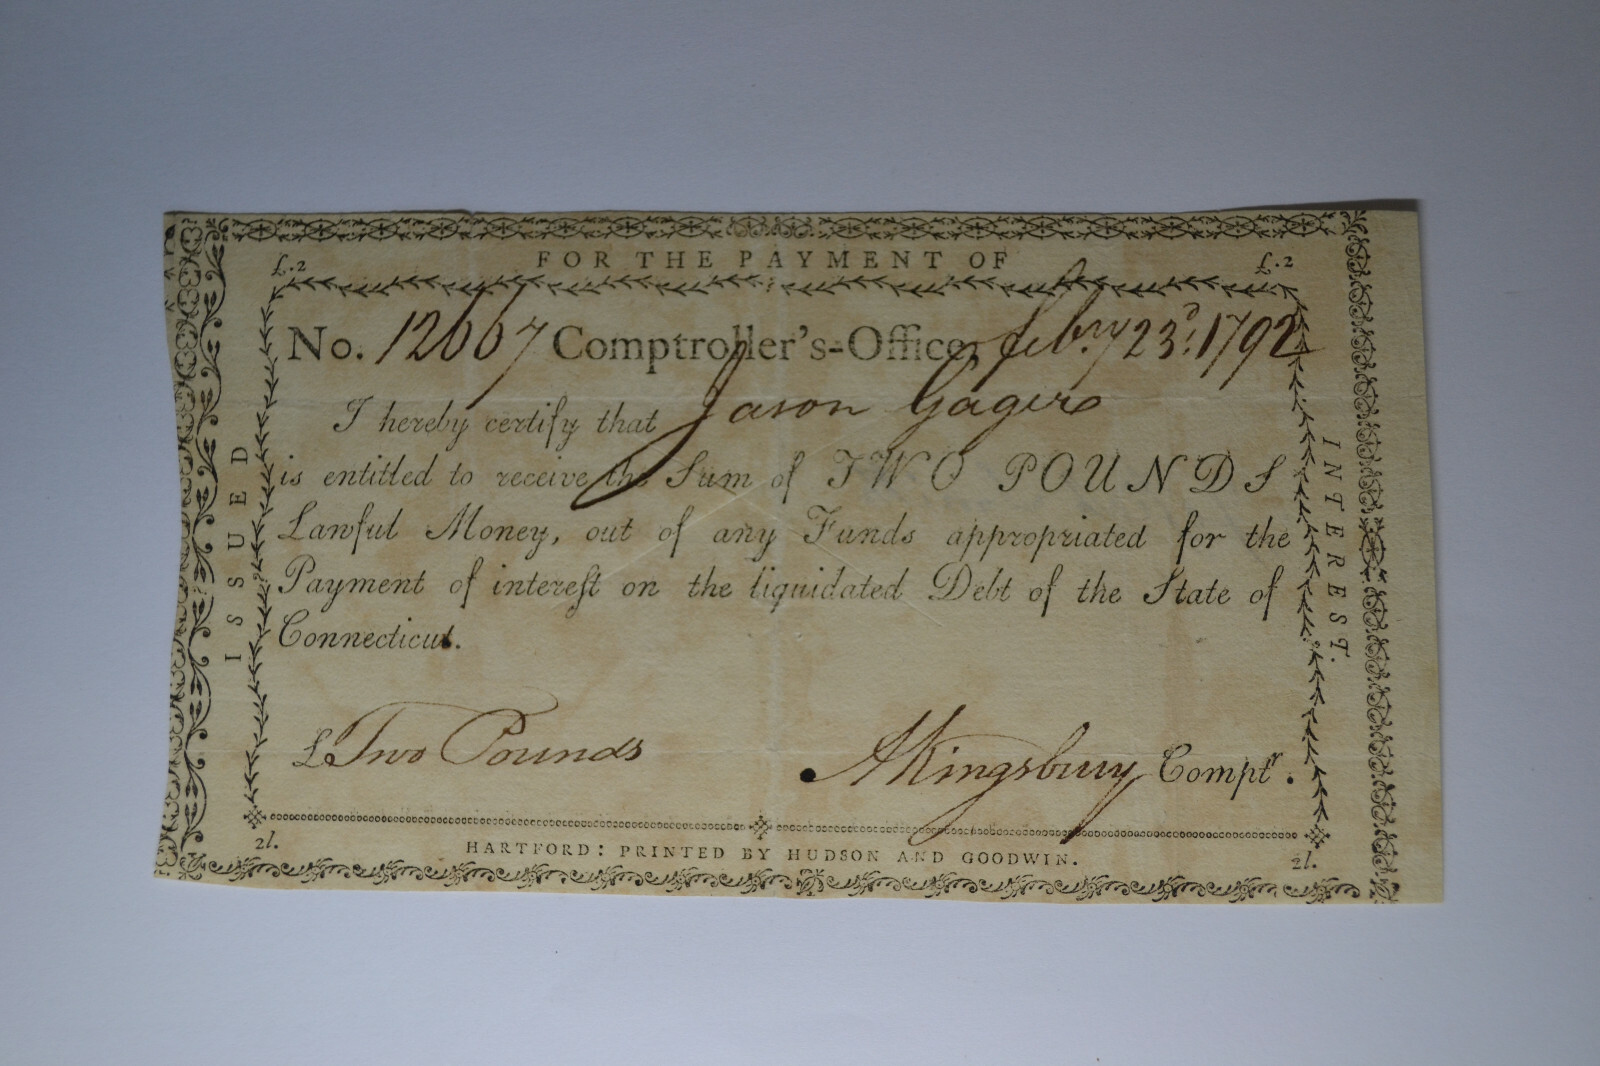 FOR THE PAYMENT OF
£.2 £.2
No. 12667 Comptroller's-Office, feb.ry 23d. 1792
I hereby certify that Jason Gager
is entitled to receive the Sum of TWO POUNDS
Lawful Money, out of any Funds appropriated for the
Payment of interest on the liquidated Debt of the State of
Connecticut.
£ Two Pounds
AKingsbury Comptr.
2l. 2l.
HARTFORD: PRINTED BY HUDSON AND GOODWIN.
ISSUED
INTEREST.